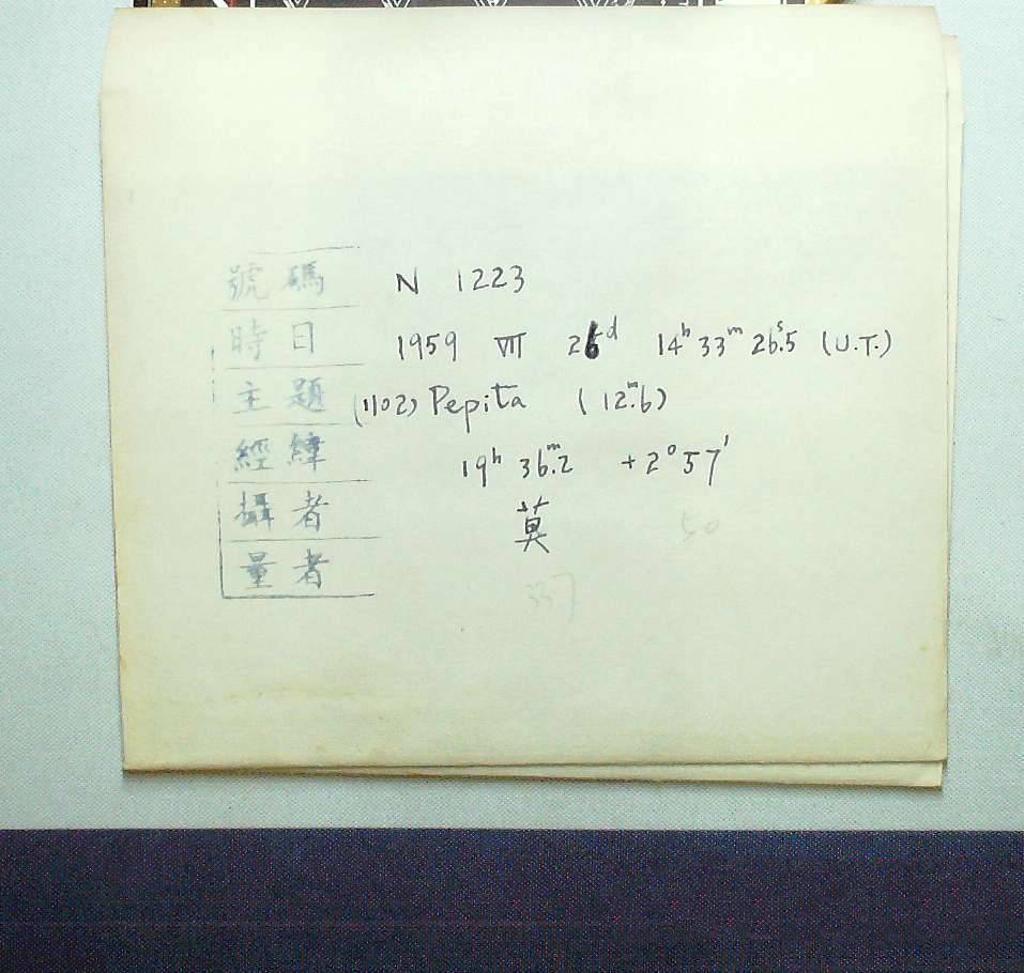 號碼 N 1223
時日 1959 VII 26ᵈ 14ʰ 33ᵐ 26ˢ.5 (U.T.)
主題 (1102) Pepita (12ᵐ.6)
經緯 19ʰ 36ᵐ.2 +2°57'
攝者 莫
50
量者
337